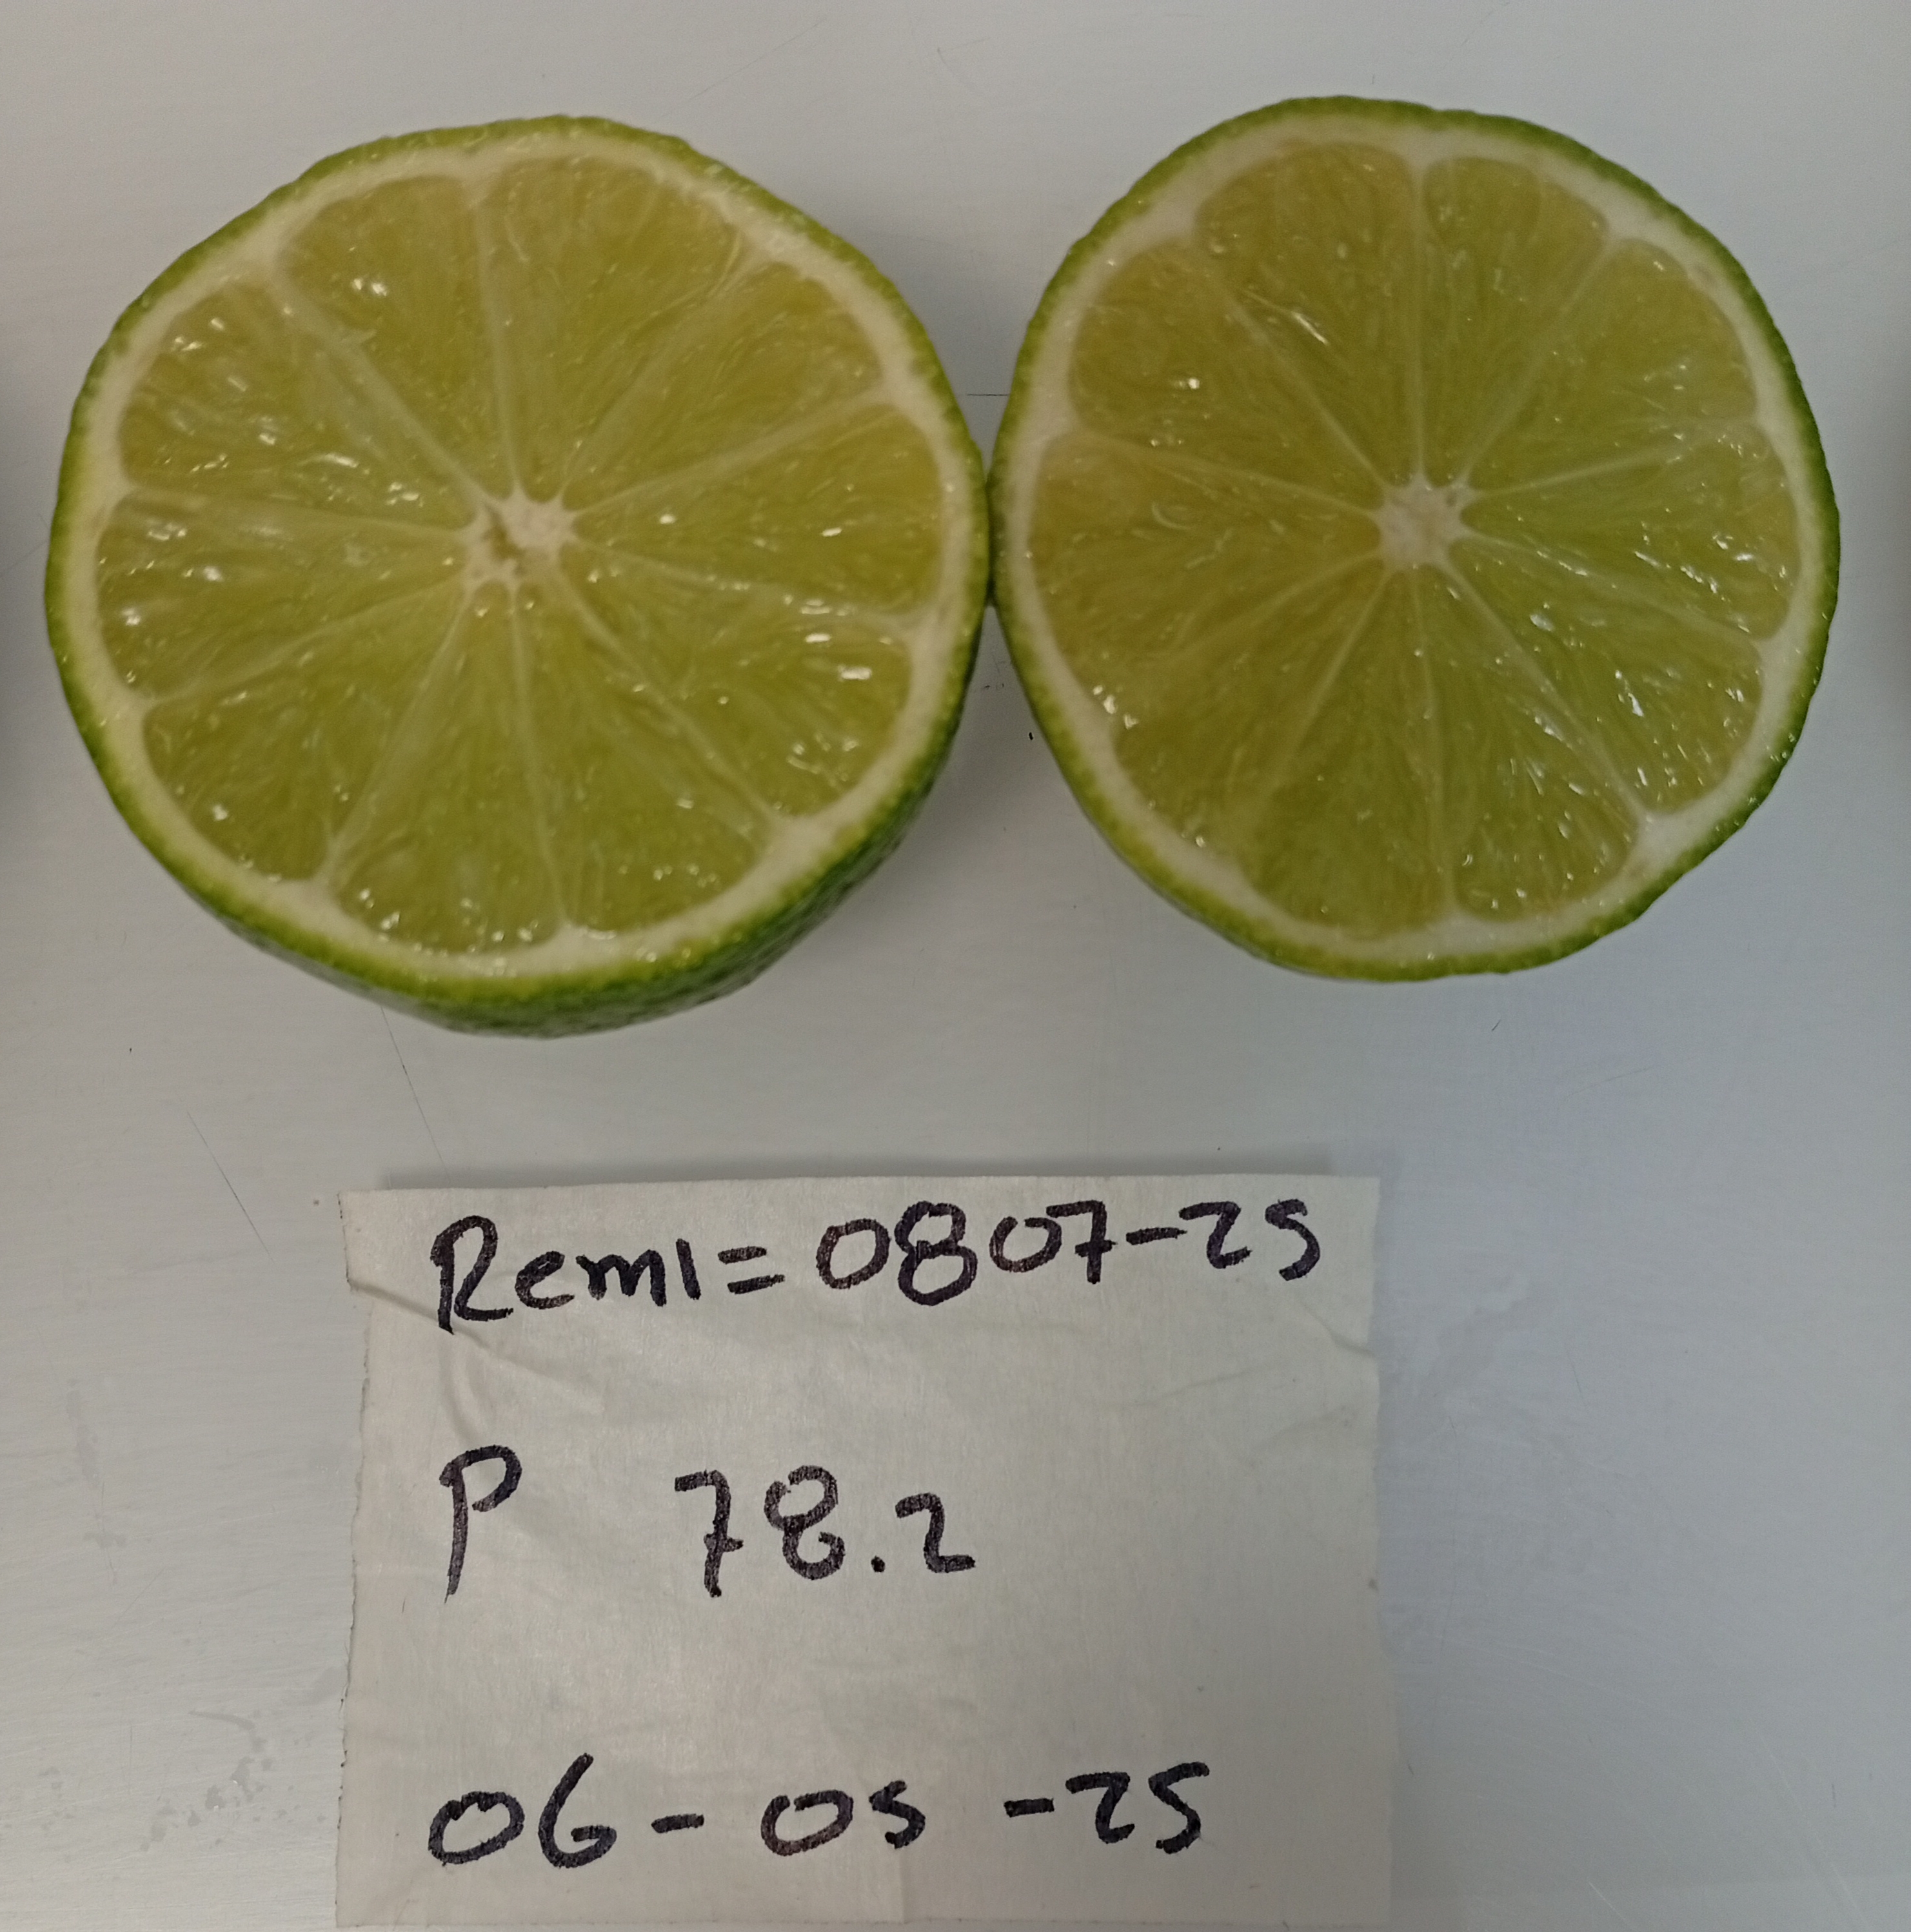 Remi=0807-25
P 78.2
06-05-25